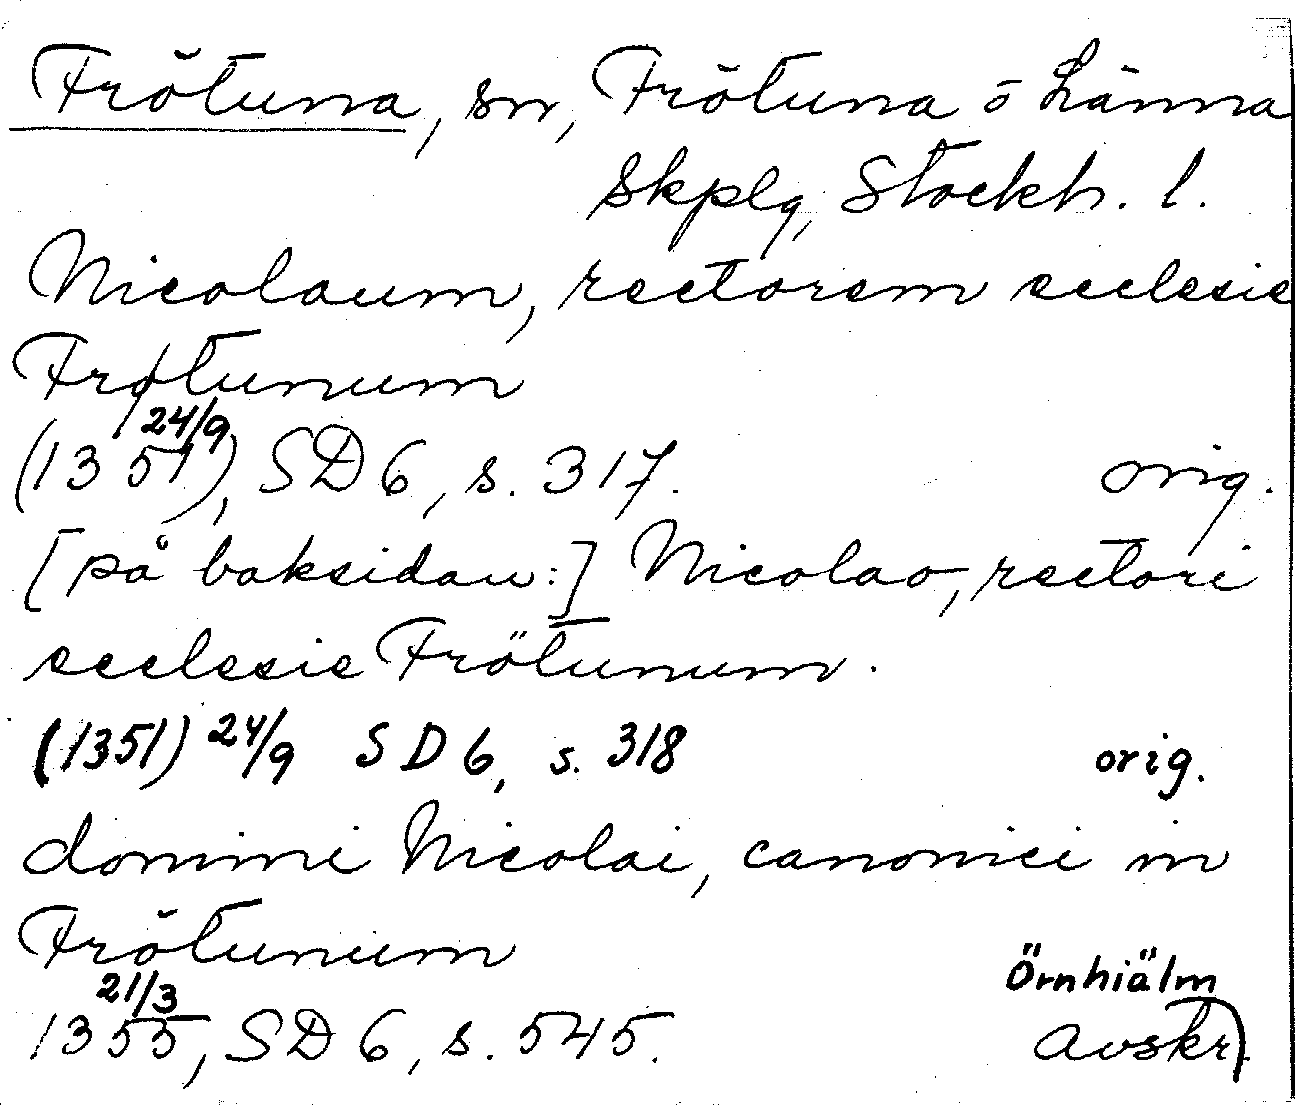 Frötuna, sn, Frötuna o Länna
Skplg, Stockh. l.
Nicolaum, rectorem ecclesie
Frøtunum
24/9
(1351), SD 6, s. 317. orig.
[på baksidan:] Nicolao, rectori
ecclesie Frötunum.
(1351) 24/9 SD 6, s. 318 orig.
domini Nicolai, canonici in
Frötunum
21/3 Örnhiälm
1355, SD 6, s. 545. avskr.